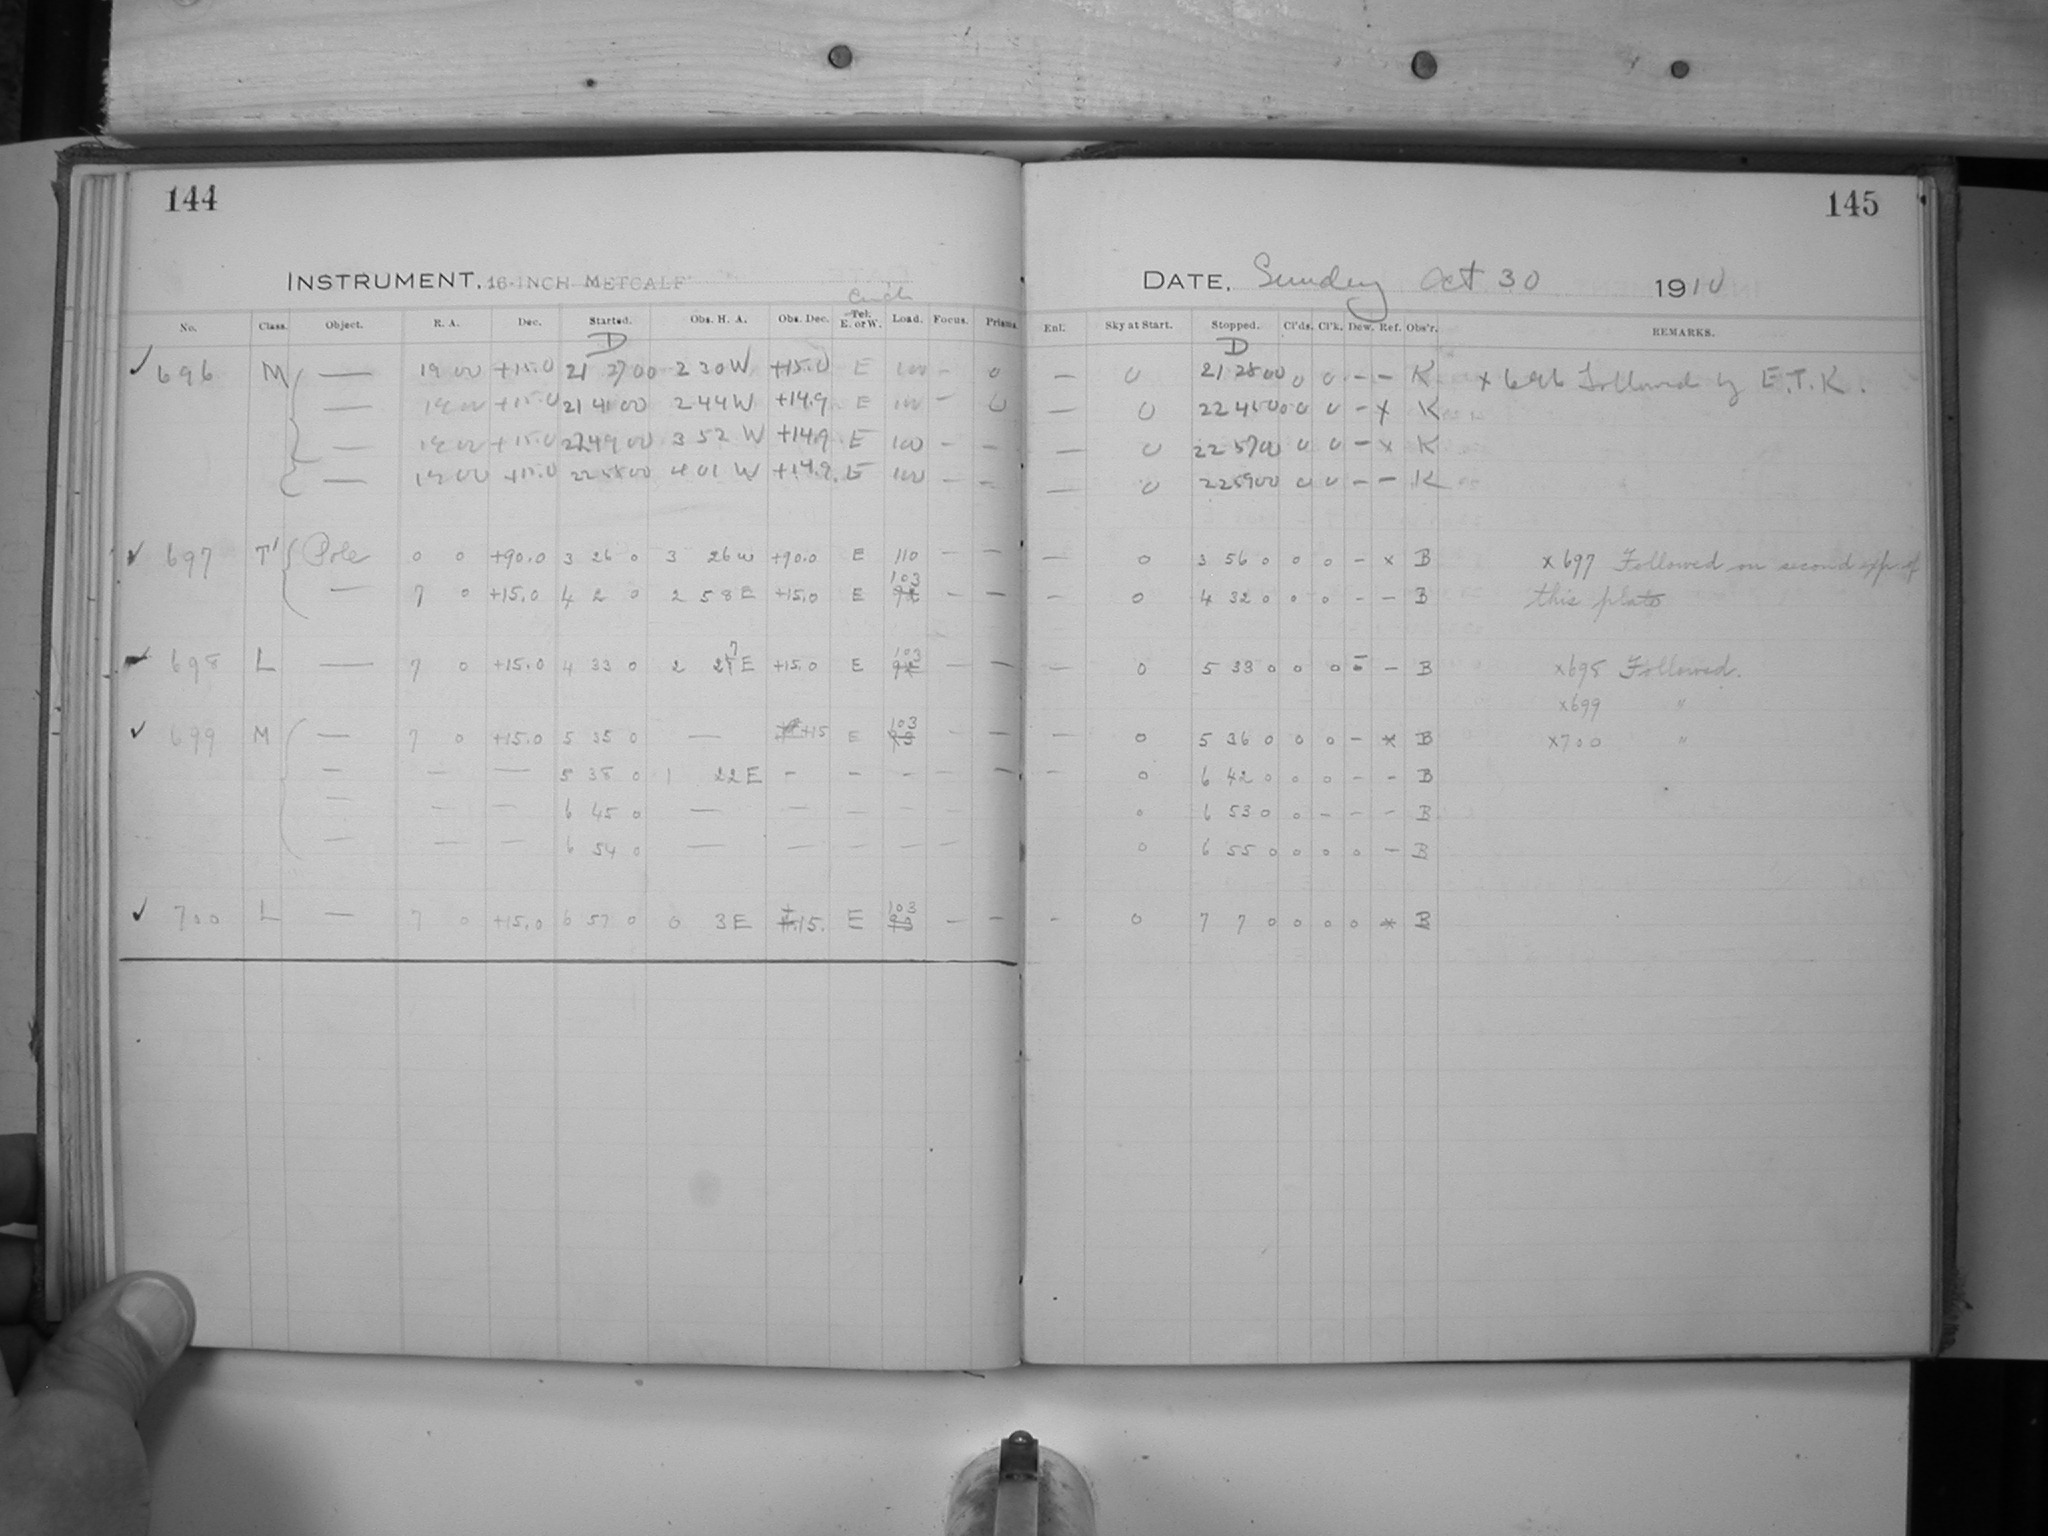 144
INSTRUMENT. 16-INCH METCALF
No. Class. Object. R. A. Dec. Started. Obs. H. A. Obs. Dec. Tel. E. or W. Load. Focus. Prisms.
D
✓ 696 M { — 19 00 +15.0 21 27 00 2 30 W +15.0 E 100 — 0
— 19 00 +15.0 21 41 00 2 44 W +14.9 E 100 — 0
— 19 00 +15.0 22 49 00 3 52 W +14.9 E 100 — —
— 19 00 +15.0 22 58 00 4 01 W +14.9 E 100 — —
✓ 697 T' { Pole 0 0 +90.0 3 26 0 3 26 W +90.0 E 110 — —
— 7 0 +15.0 4 2 0 2 58 E +15.0 E 103 — —
✓ 698 L — 7 0 +15.0 4 33 0 2 27 E +15.0 E 103 — —
✓ 699 M { — 7 0 +15.0 5 35 0 — +15 E 103 — —
— — — 5 38 0 1 22 E — — — — —
— — — 6 45 0 — — — — —
— — — 6 54 0 — — — — —
✓ 700 L — 7 0 +15.0 6 57 0 0 3 E +15. E 103 — —
145
DATE. Sunday Oct 30 1910
Enl. Sky at Start. Stopped. Cl'ds. Cl'k. Dew. Ref. Obs'r. REMARKS.
D
— 0 21 28 00 0 0 — — K x 696 Followed by E.T.K.
— 0 22 45 00 0 0 — x K
— 0 22 57 00 0 0 — x K
— 0 22 59 00 0 0 — — K
— 0 3 56 0 0 0 — x B x 697 Followed on second exp. of
— 0 4 32 0 0 0 — — B this plate
— 0 5 33 0 0 0 — B x698 Followed.
x699 "
0 5 36 0 0 0 — x B x700 "
— 0 6 42 0 0 0 — — B
0 6 53 0 0 — — — B
0 6 55 0 0 0 0 — B
— 0 7 7 0 0 0 0 x B